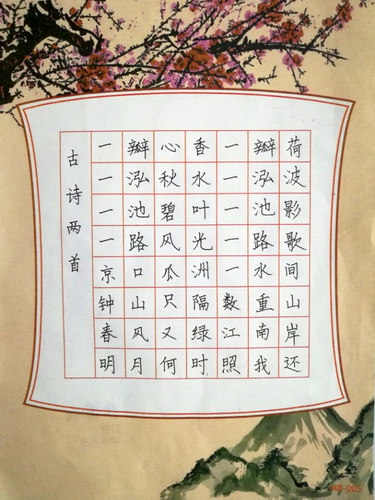 古诗两首
一瓣心香一瓣荷
一泓秋水一泓波
一池碧叶一池影
一路风光一路歌
京口瓜洲一水间
钟山只隔数重山
春风又绿江南岸
明月何时照我还
HB-005